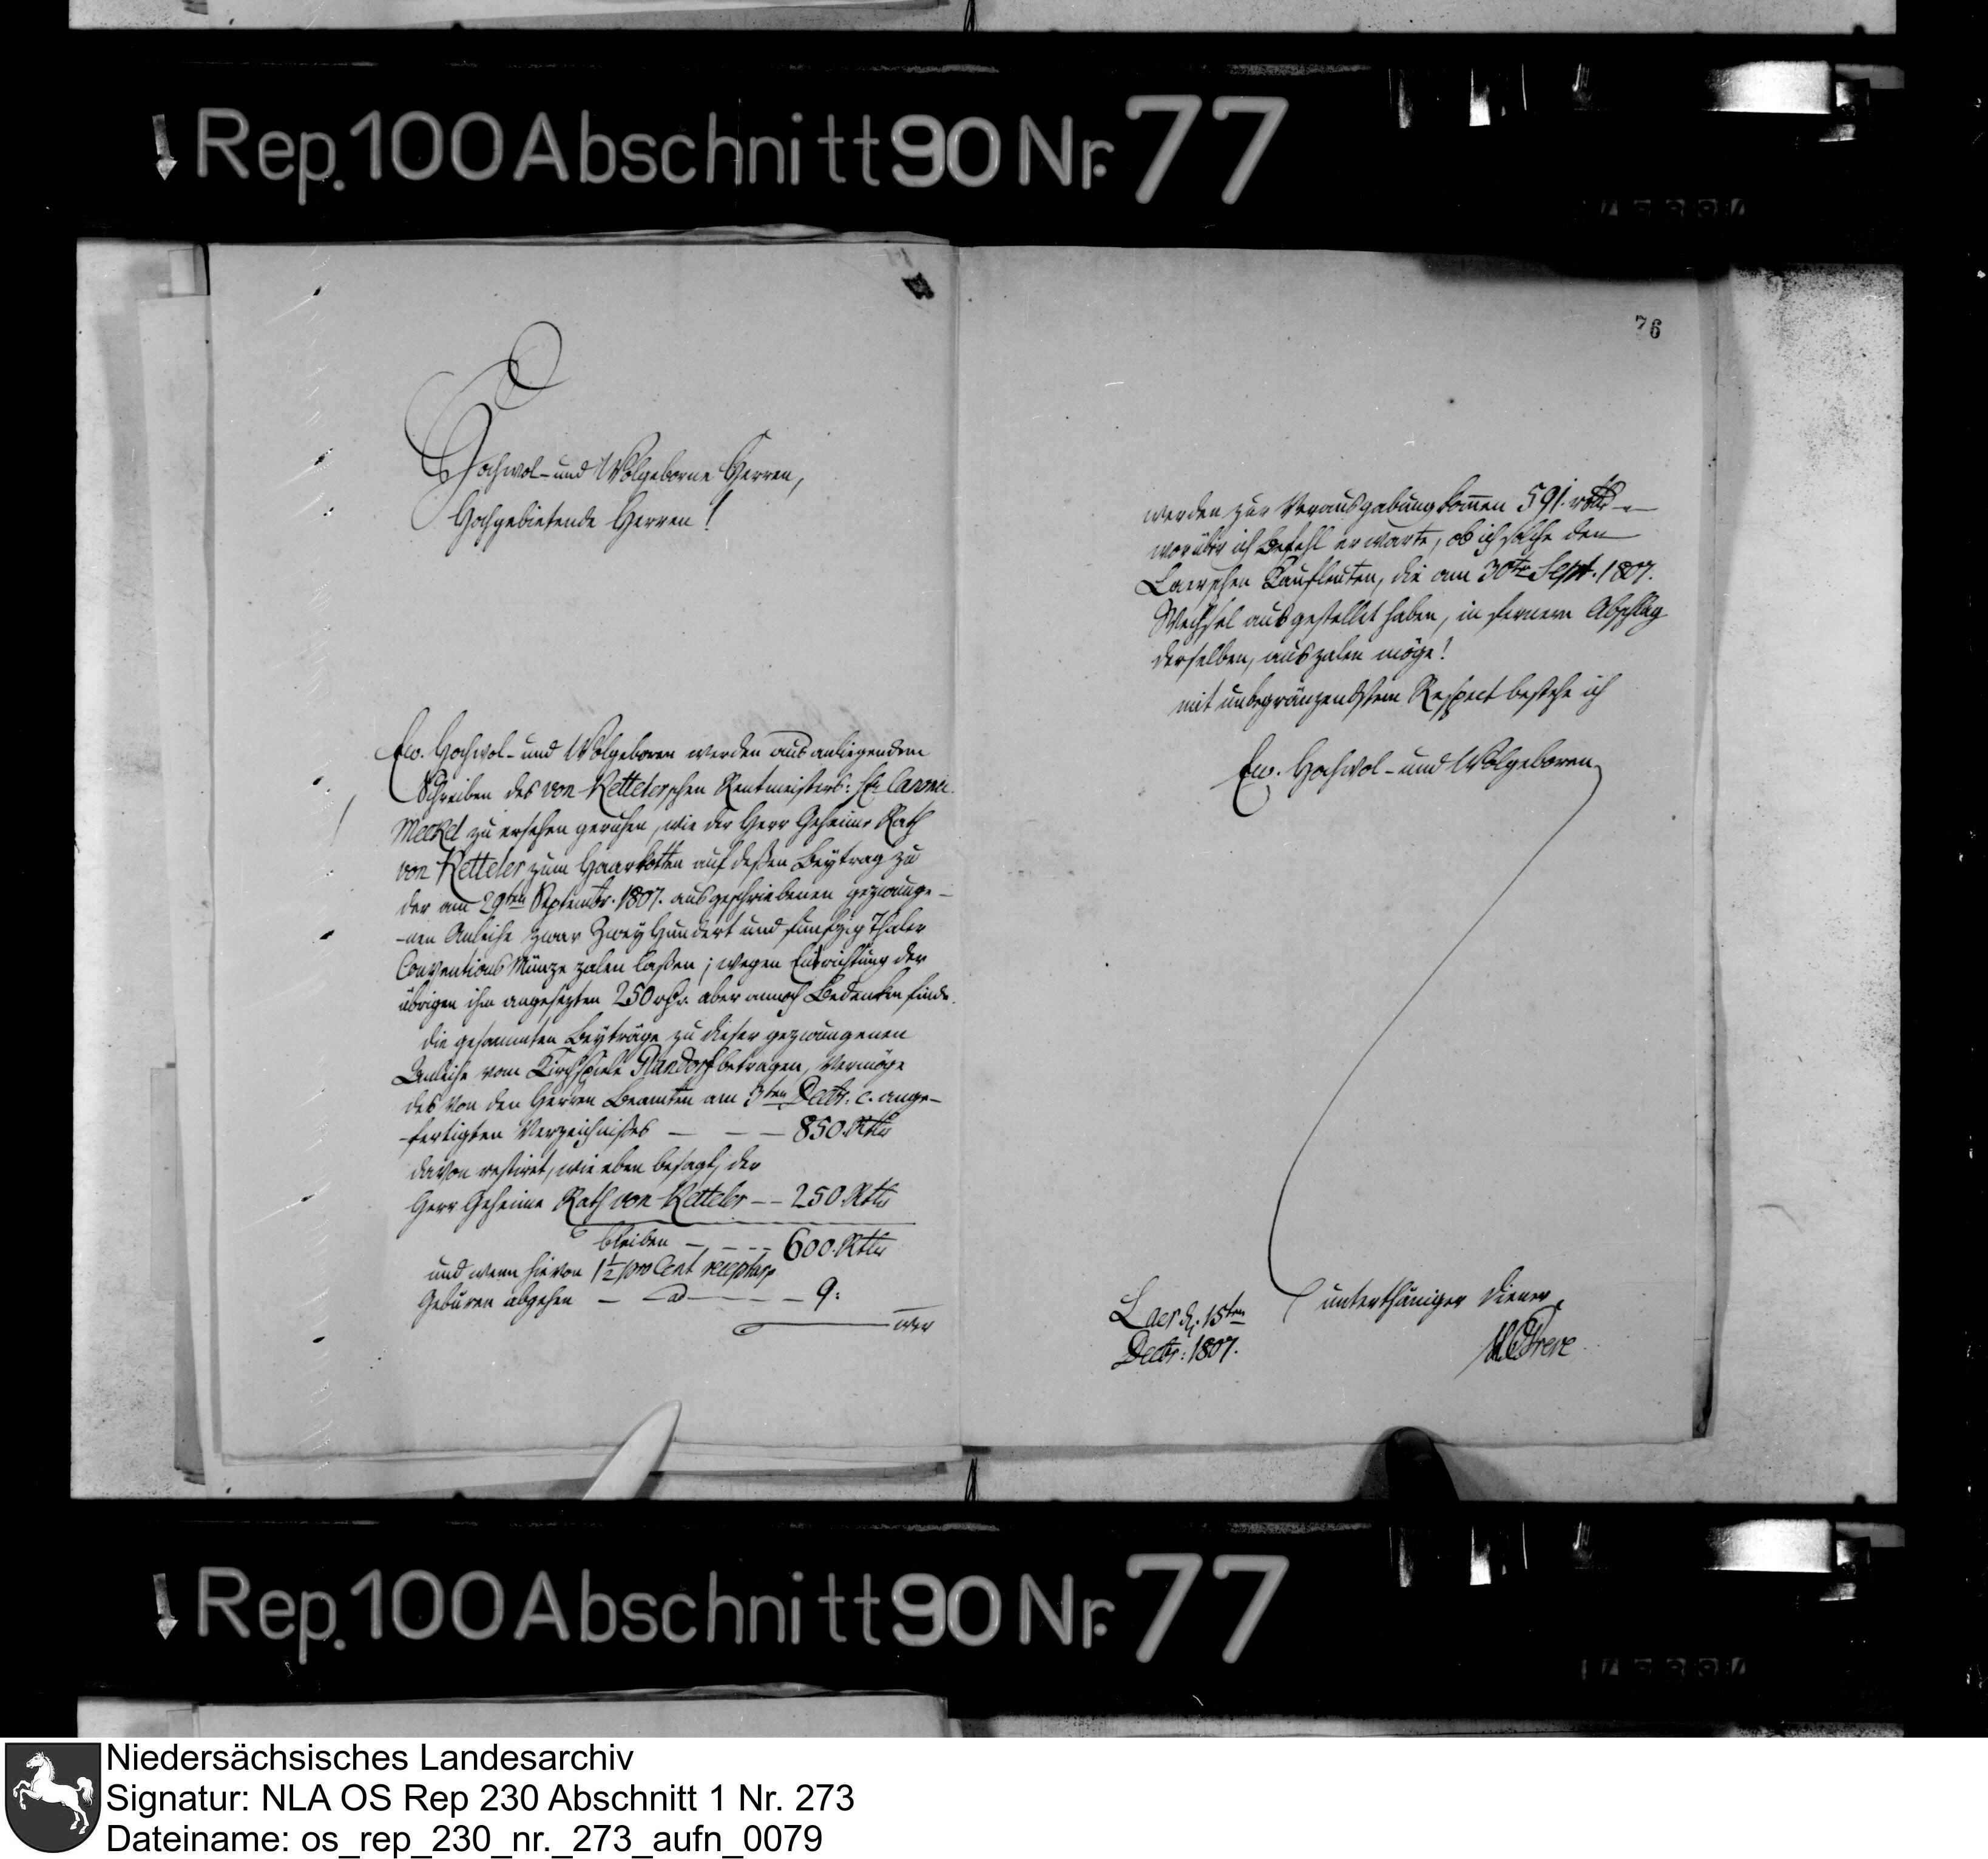 Rep. 100 Abschnitt 90 Nr. 77
76
Hochwol- und Wolgeborne Herren,
Hochgebietende Herren!
Ew. Hochwol- und Wolgeboren werden aus anliegendem
Schreiben des von Kettelerschen Rentmeisters:
Meckel zu ersehen geruhen, wie der Herr Geheime Rath
von Ketteler zum Haarkotten auf deßen Beytrag zu
der am 29ten Septembr. 1807. ausgeschriebenen gezwunge-
-nen Anleihe zwar Zwey Hundert und funfzig Thaler
Conventions Münze zalen laßen; wegen Entrichtung der
übrigen ihm angesezten 250 rthr. aber annoch Bedenken finde.
die gesammten Beyträge zu dieser gezwungenen
Anleihe vom Kirchspiele Glandorf betragen, Vermöge
des von den Herren Beamten am 3ten Decbr. c. ange-
-fertigten Verzeichnißes — — — 850 Rthr
davon restiret, wie eben besagt, der
Herr Geheime Rath von Ketteler — — 250 Rthr
bleiben — — — 600 Rthr
und wenn hievon 1½ pro Cent receptur
Geburen abgehen — ad — — 9:
wer
werden zur Verausgabung kommen 591. rthr
worüber ich Befehl erwarte, ob ich solche den
Laerschen Kaufleuten, die am 30ten Sept. 1807.
Wechsel ausgestellet haben, in fernern Abschlag
derselben, auszalen möge!
mit unbegränzendstem Respect bestehe ich
Ew. Hochwol- und Wolgeboren
unterthäniger Diener
Laer d. 15ten
Decbr: 1807.
Rep. 100 Abschnitt 90 Nr. 77
Niedersächsisches Landesarchiv
Signatur: NLA OS Rep 230 Abschnitt 1 Nr. 273
Dateiname: os_rep_230_nr._273_aufn_0079